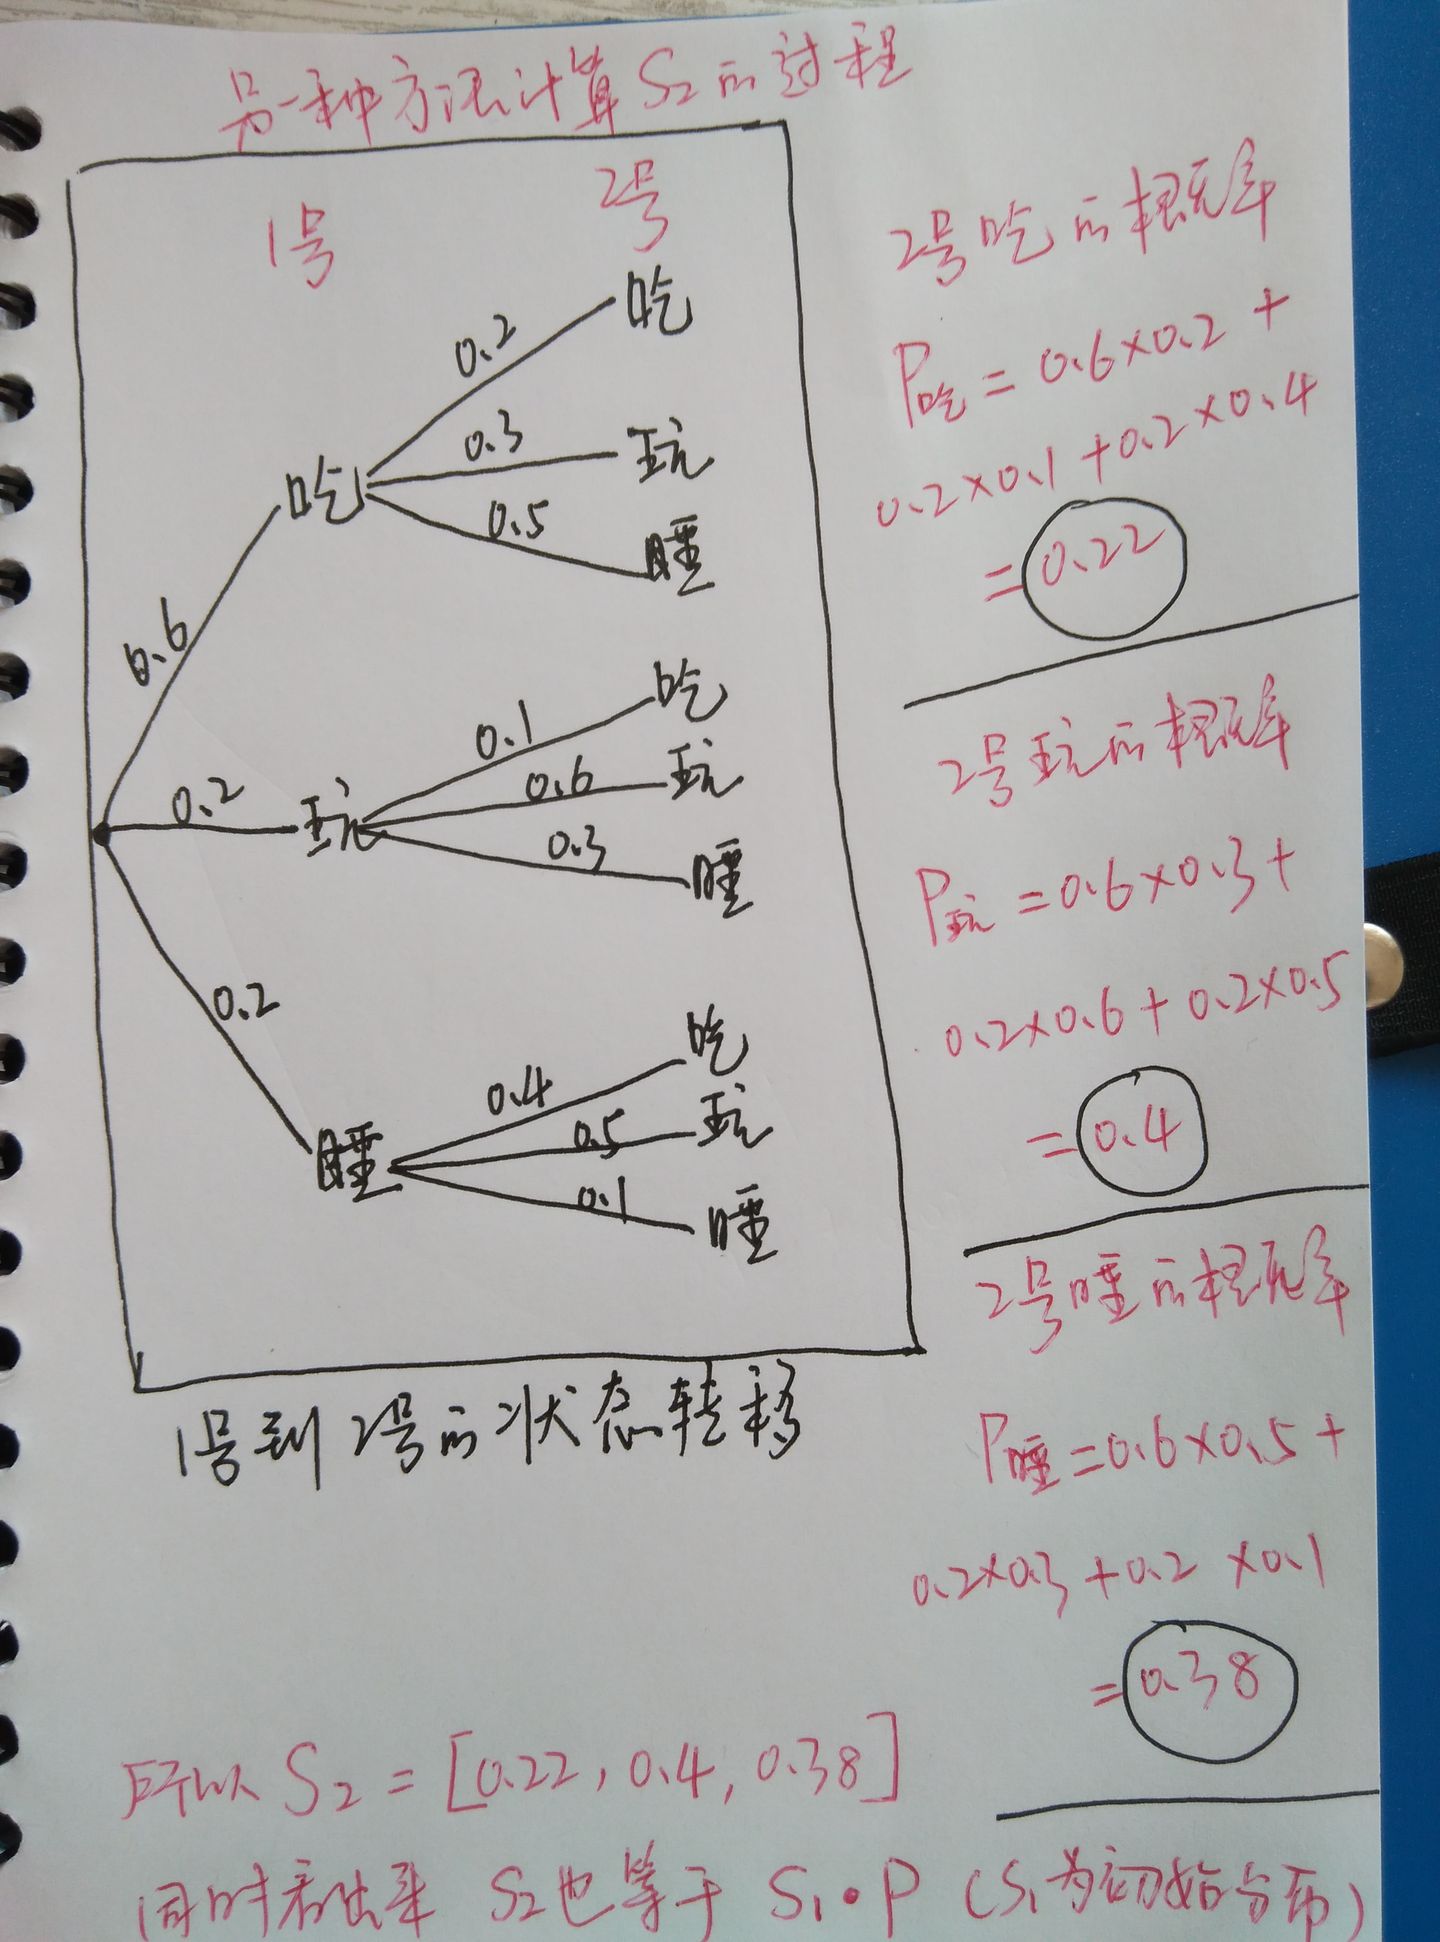 另一种方法计算S₂的过程
1号 2号
0.6 吃 0.2 吃
0.3 玩
0.5 睡
0.2 玩 0.1 吃
0.6 玩
0.3 睡
0.2 睡 0.4 吃
0.5 玩
0.1 睡
1号到2号的状态转移
2号吃的概率
P吃=0.6×0.2+
0.2×0.1+0.2×0.4
=0.22
2号玩的概率
P玩=0.6×0.3+
0.2×0.6+0.2×0.5
=0.4
2号睡的概率
P睡=0.6×0.5+
0.2×0.3+0.2×0.1
=0.38
所以S₂=[0.22,0.4,0.38]
同时看出来 S₂也等于 S₁•P (S₁为初始分布)